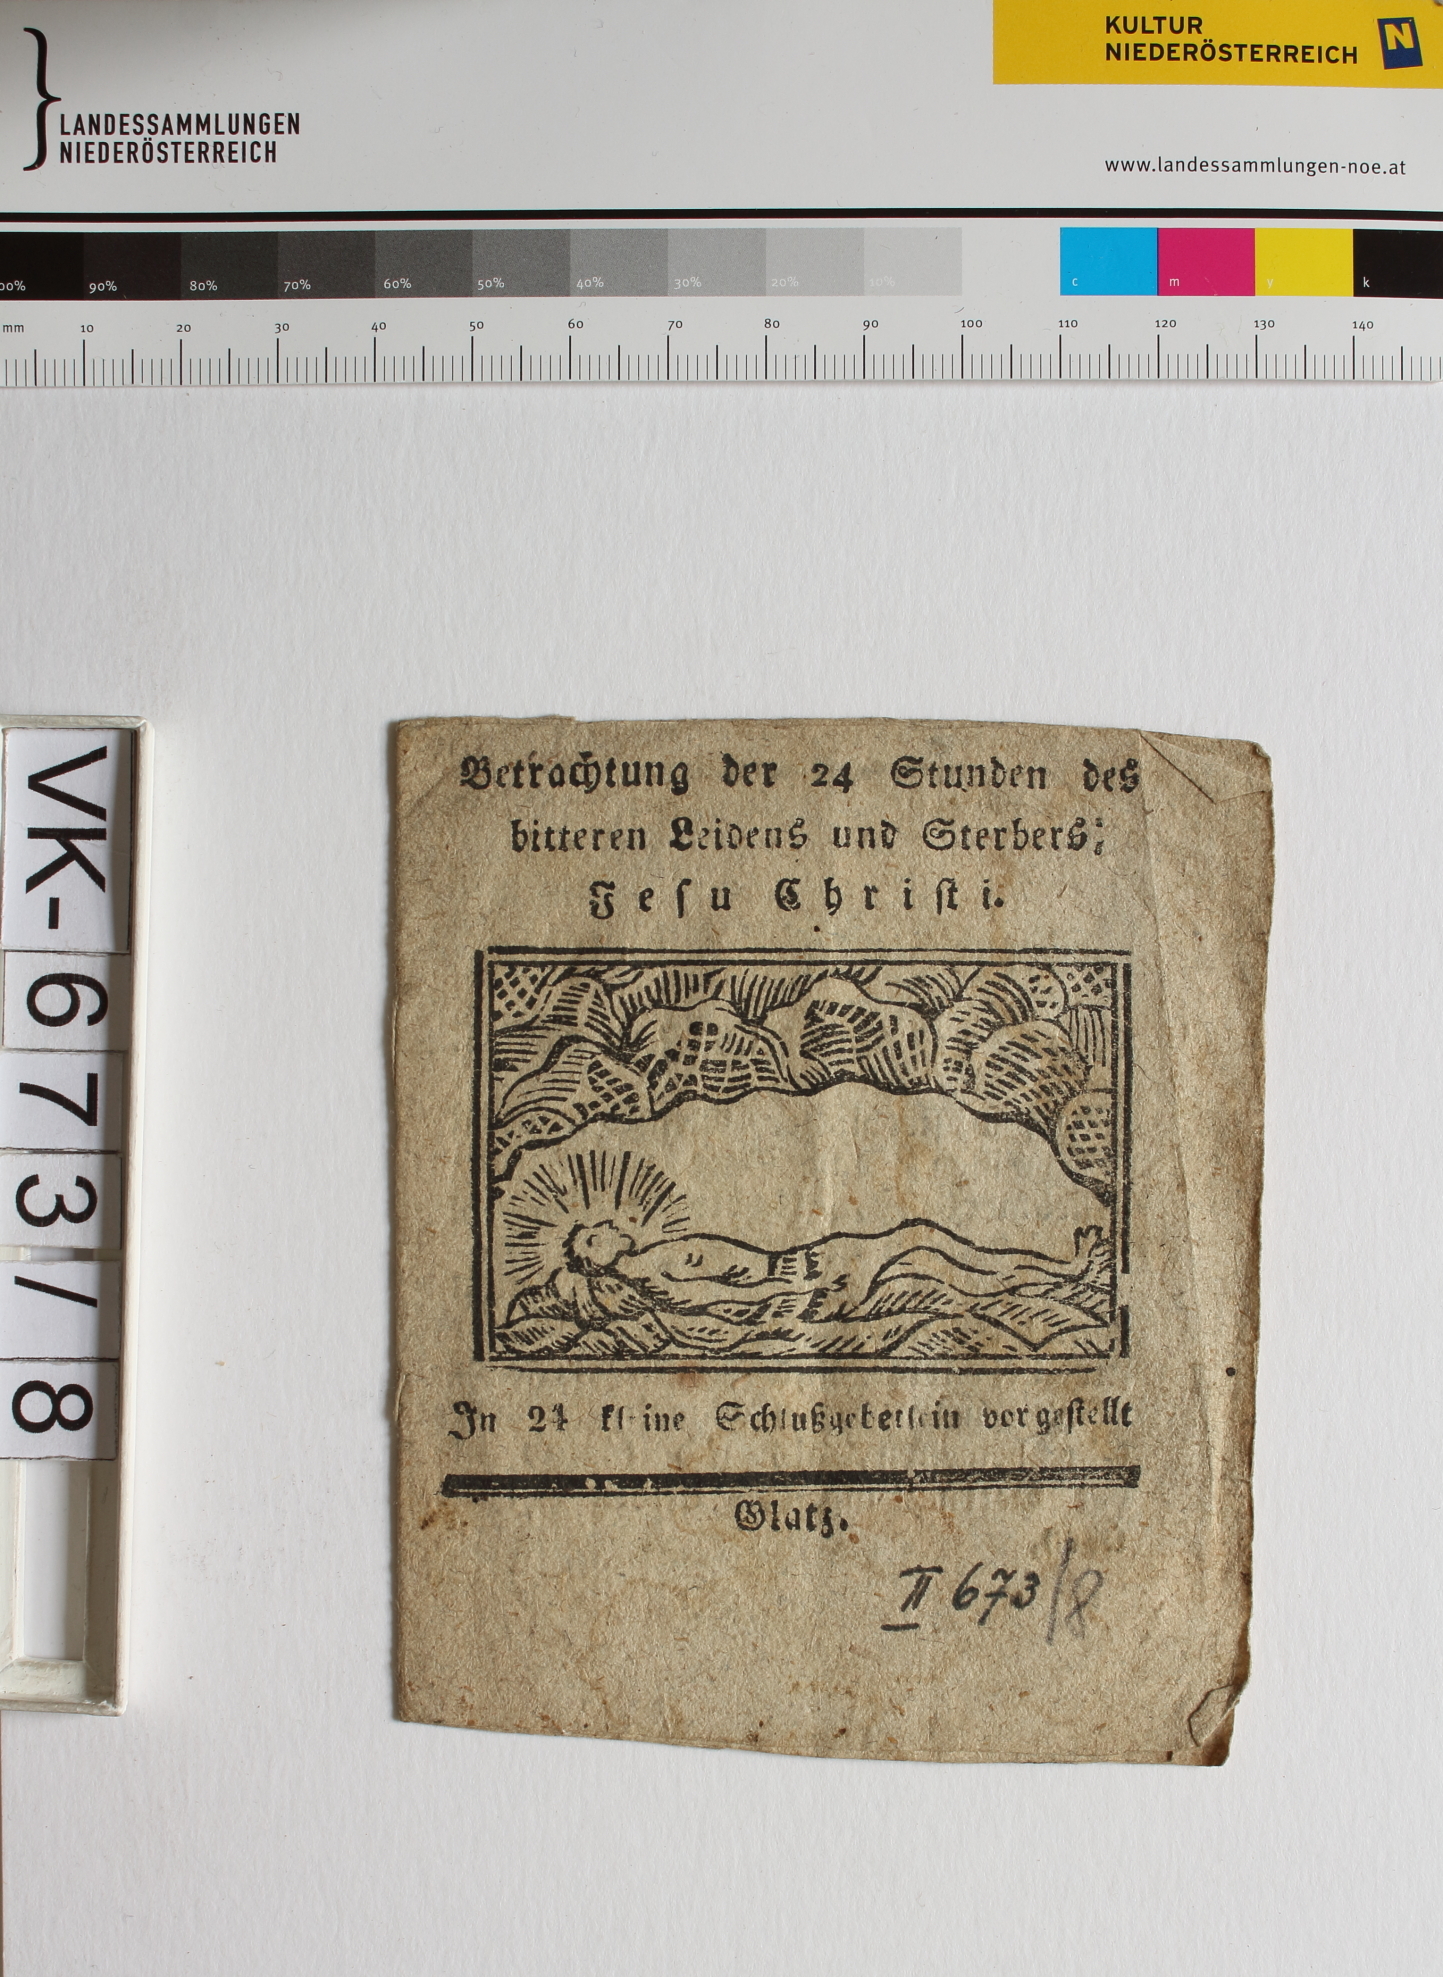 KULTUR
NIEDERÖSTERREICH
N
LANDESSAMMLUNGEN
NIEDERÖSTERREICH
www.landessammlungen-noe.at
90% 80% 70% 60% 50% 40% 30% 20% 10% c m y k
mm 10 20 30 40 50 60 70 80 90 100 110 120 130 140
VK-673/8
Betrachtung der 24 Stunden des
bitteren Leidens und Sterbers;
Jesu Christi.
In 24 kleine Schlußgebetlein vorgestellt
Glatz.
II 673/8